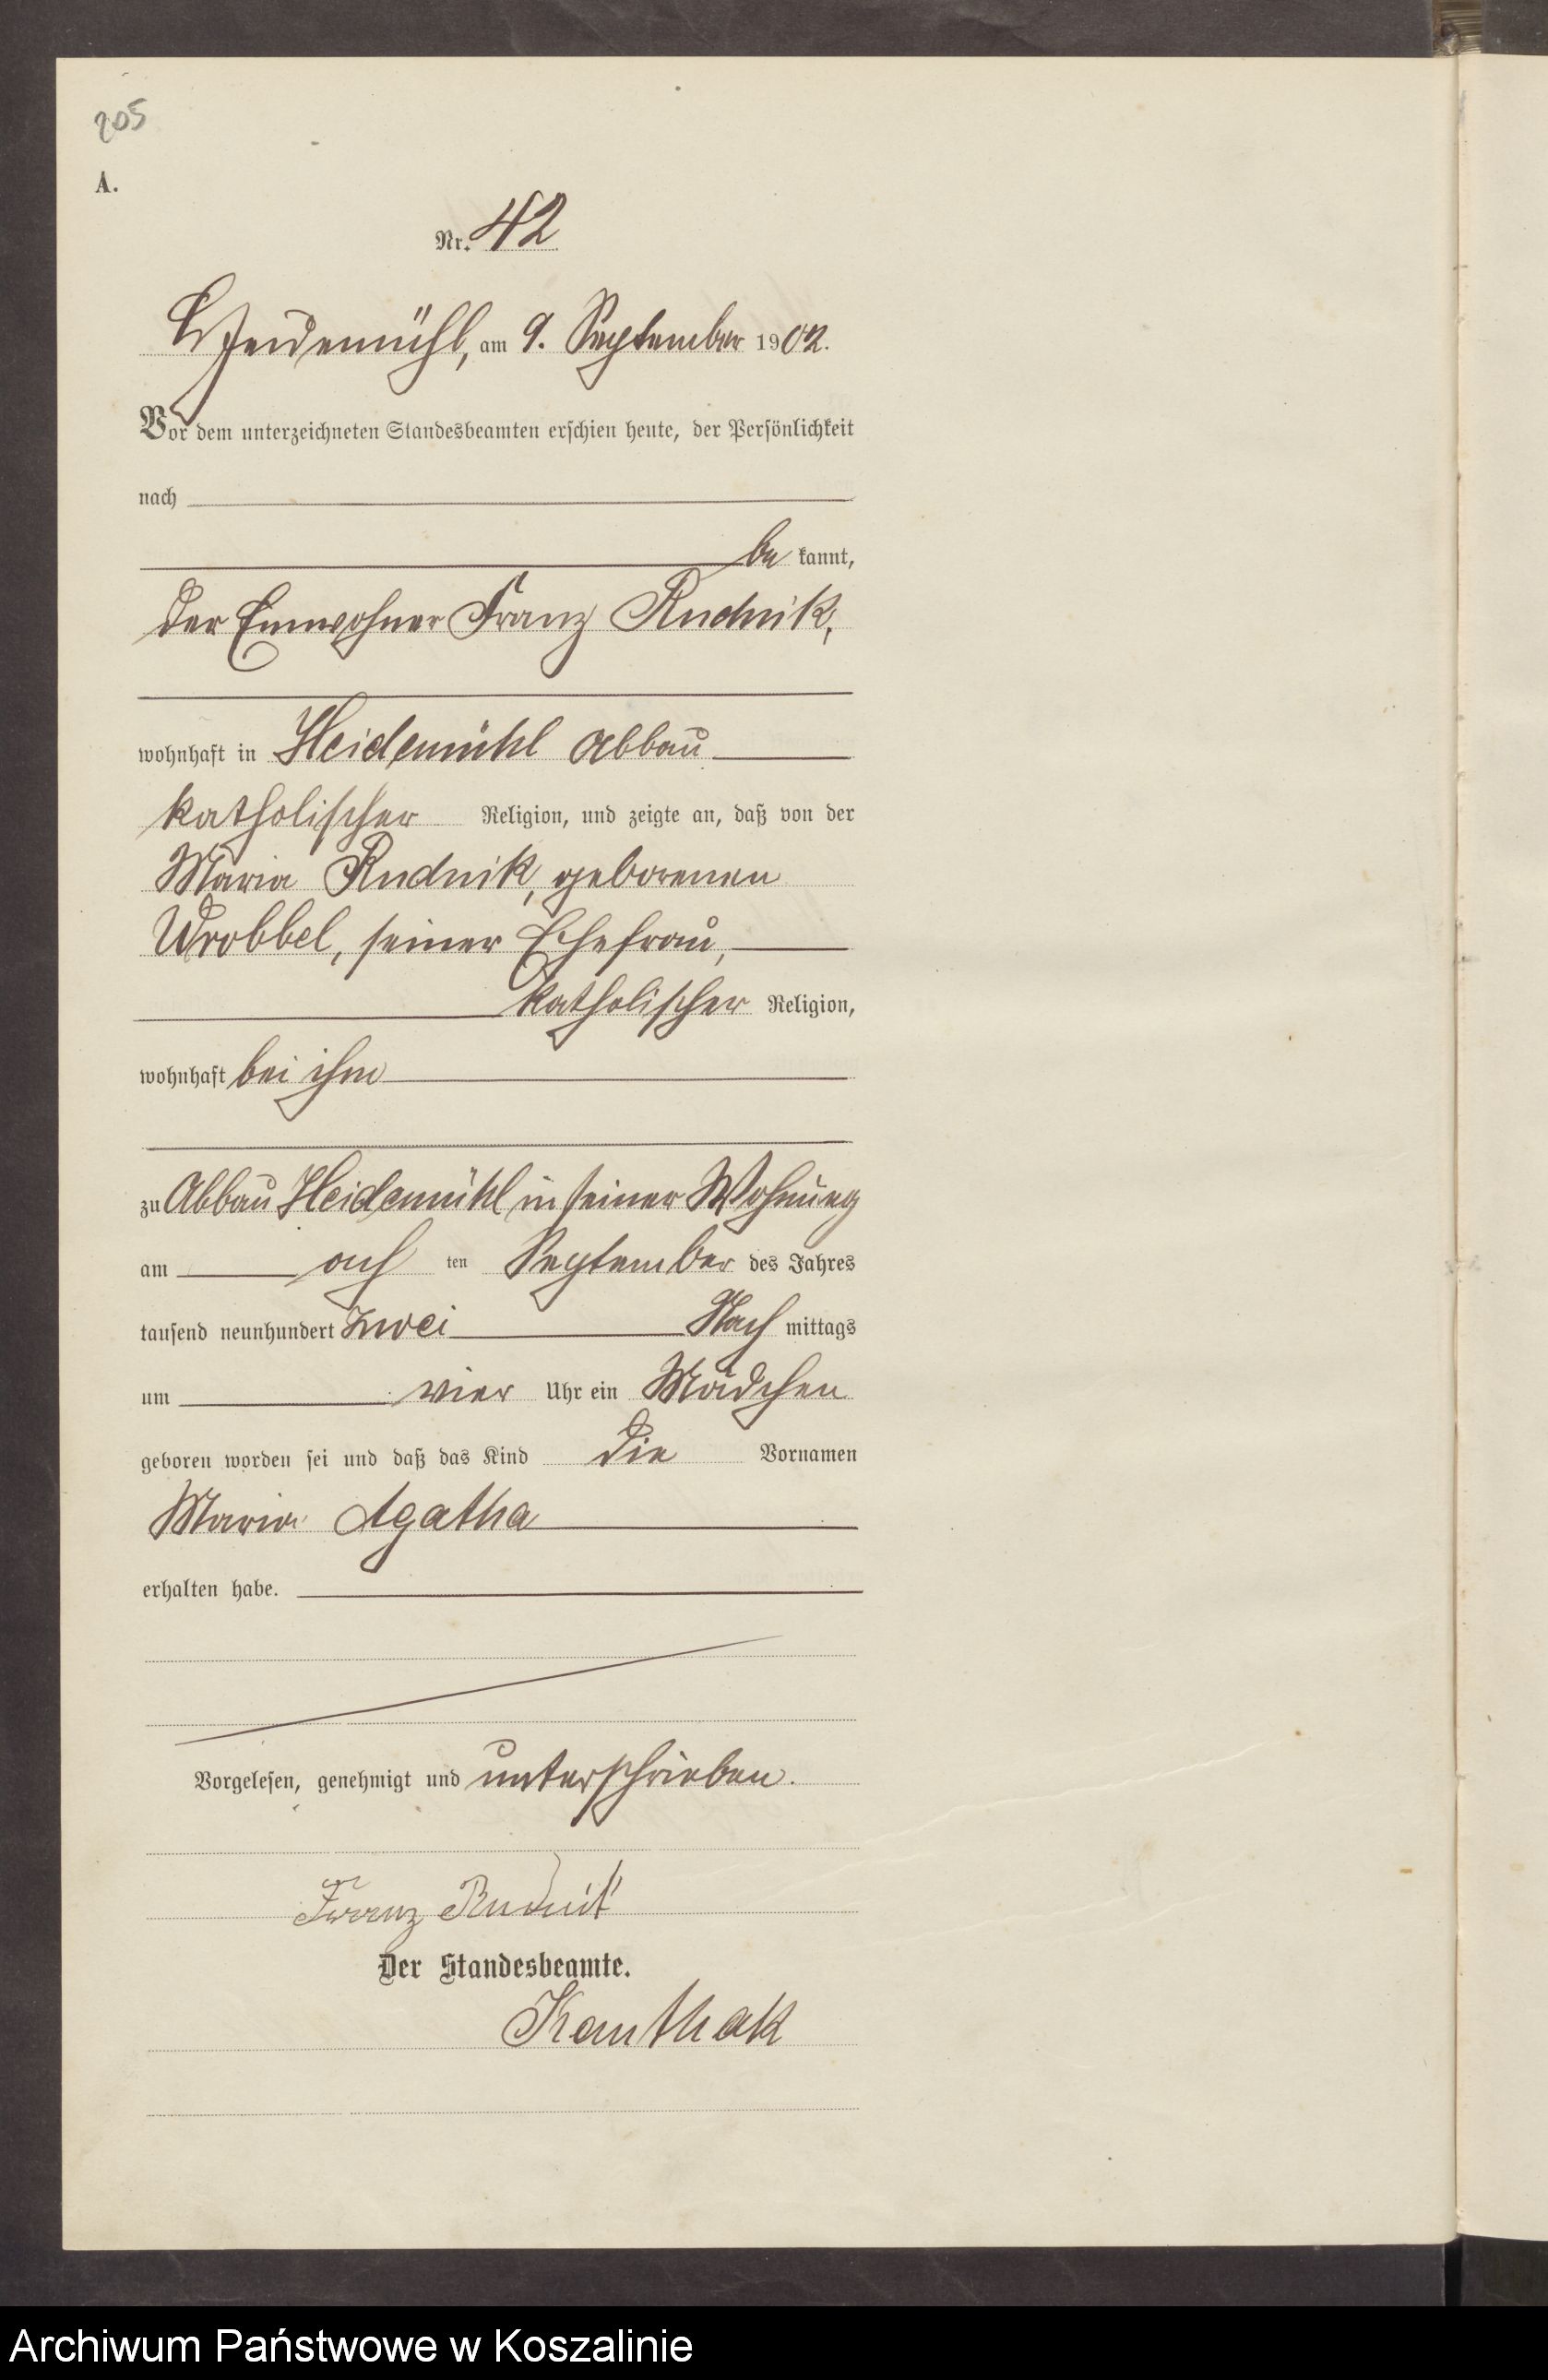 205
A.
Nr. 42
Heidemühl, am 9. September 1902.
Vor dem unterzeichneten Standesbeamten erschien heute, der Persönlichkeit
nach
be kannt,
der Einwohner Franz Rudnik,
wohnhaft in Heidemühl Abbau
katholischer Religion, und zeigte an, daß von der
Maria Rudnik, geborenen
Wrobbel, seiner Ehefrau,
katholischer Religion,
wohnhaft bei ihm
zu Abbau Heidemühl in seiner Wohnung
am ach ten September des Jahres
tausend neunhundert zwei Nach mittags
um vier Uhr ein Mädchen
geboren worden sei und daß das Kind die Vornamen
Maria Agatha
erhalten habe.
Vorgelesen, genehmigt und unterschrieben.
Franz Rudnik
Der Standesbeamte.
Kauthak
Archiwum Państwowe w Koszalinie